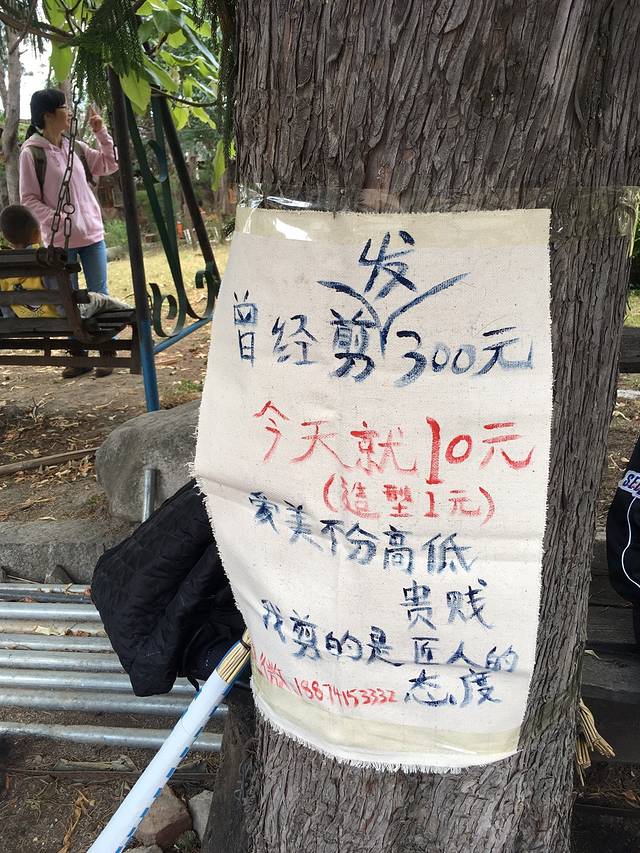 发
曾经剪 300元
今天就10元
(造型1元)
爱美不分高低
贵贱
我剪的是匠人的
态度
18874153332